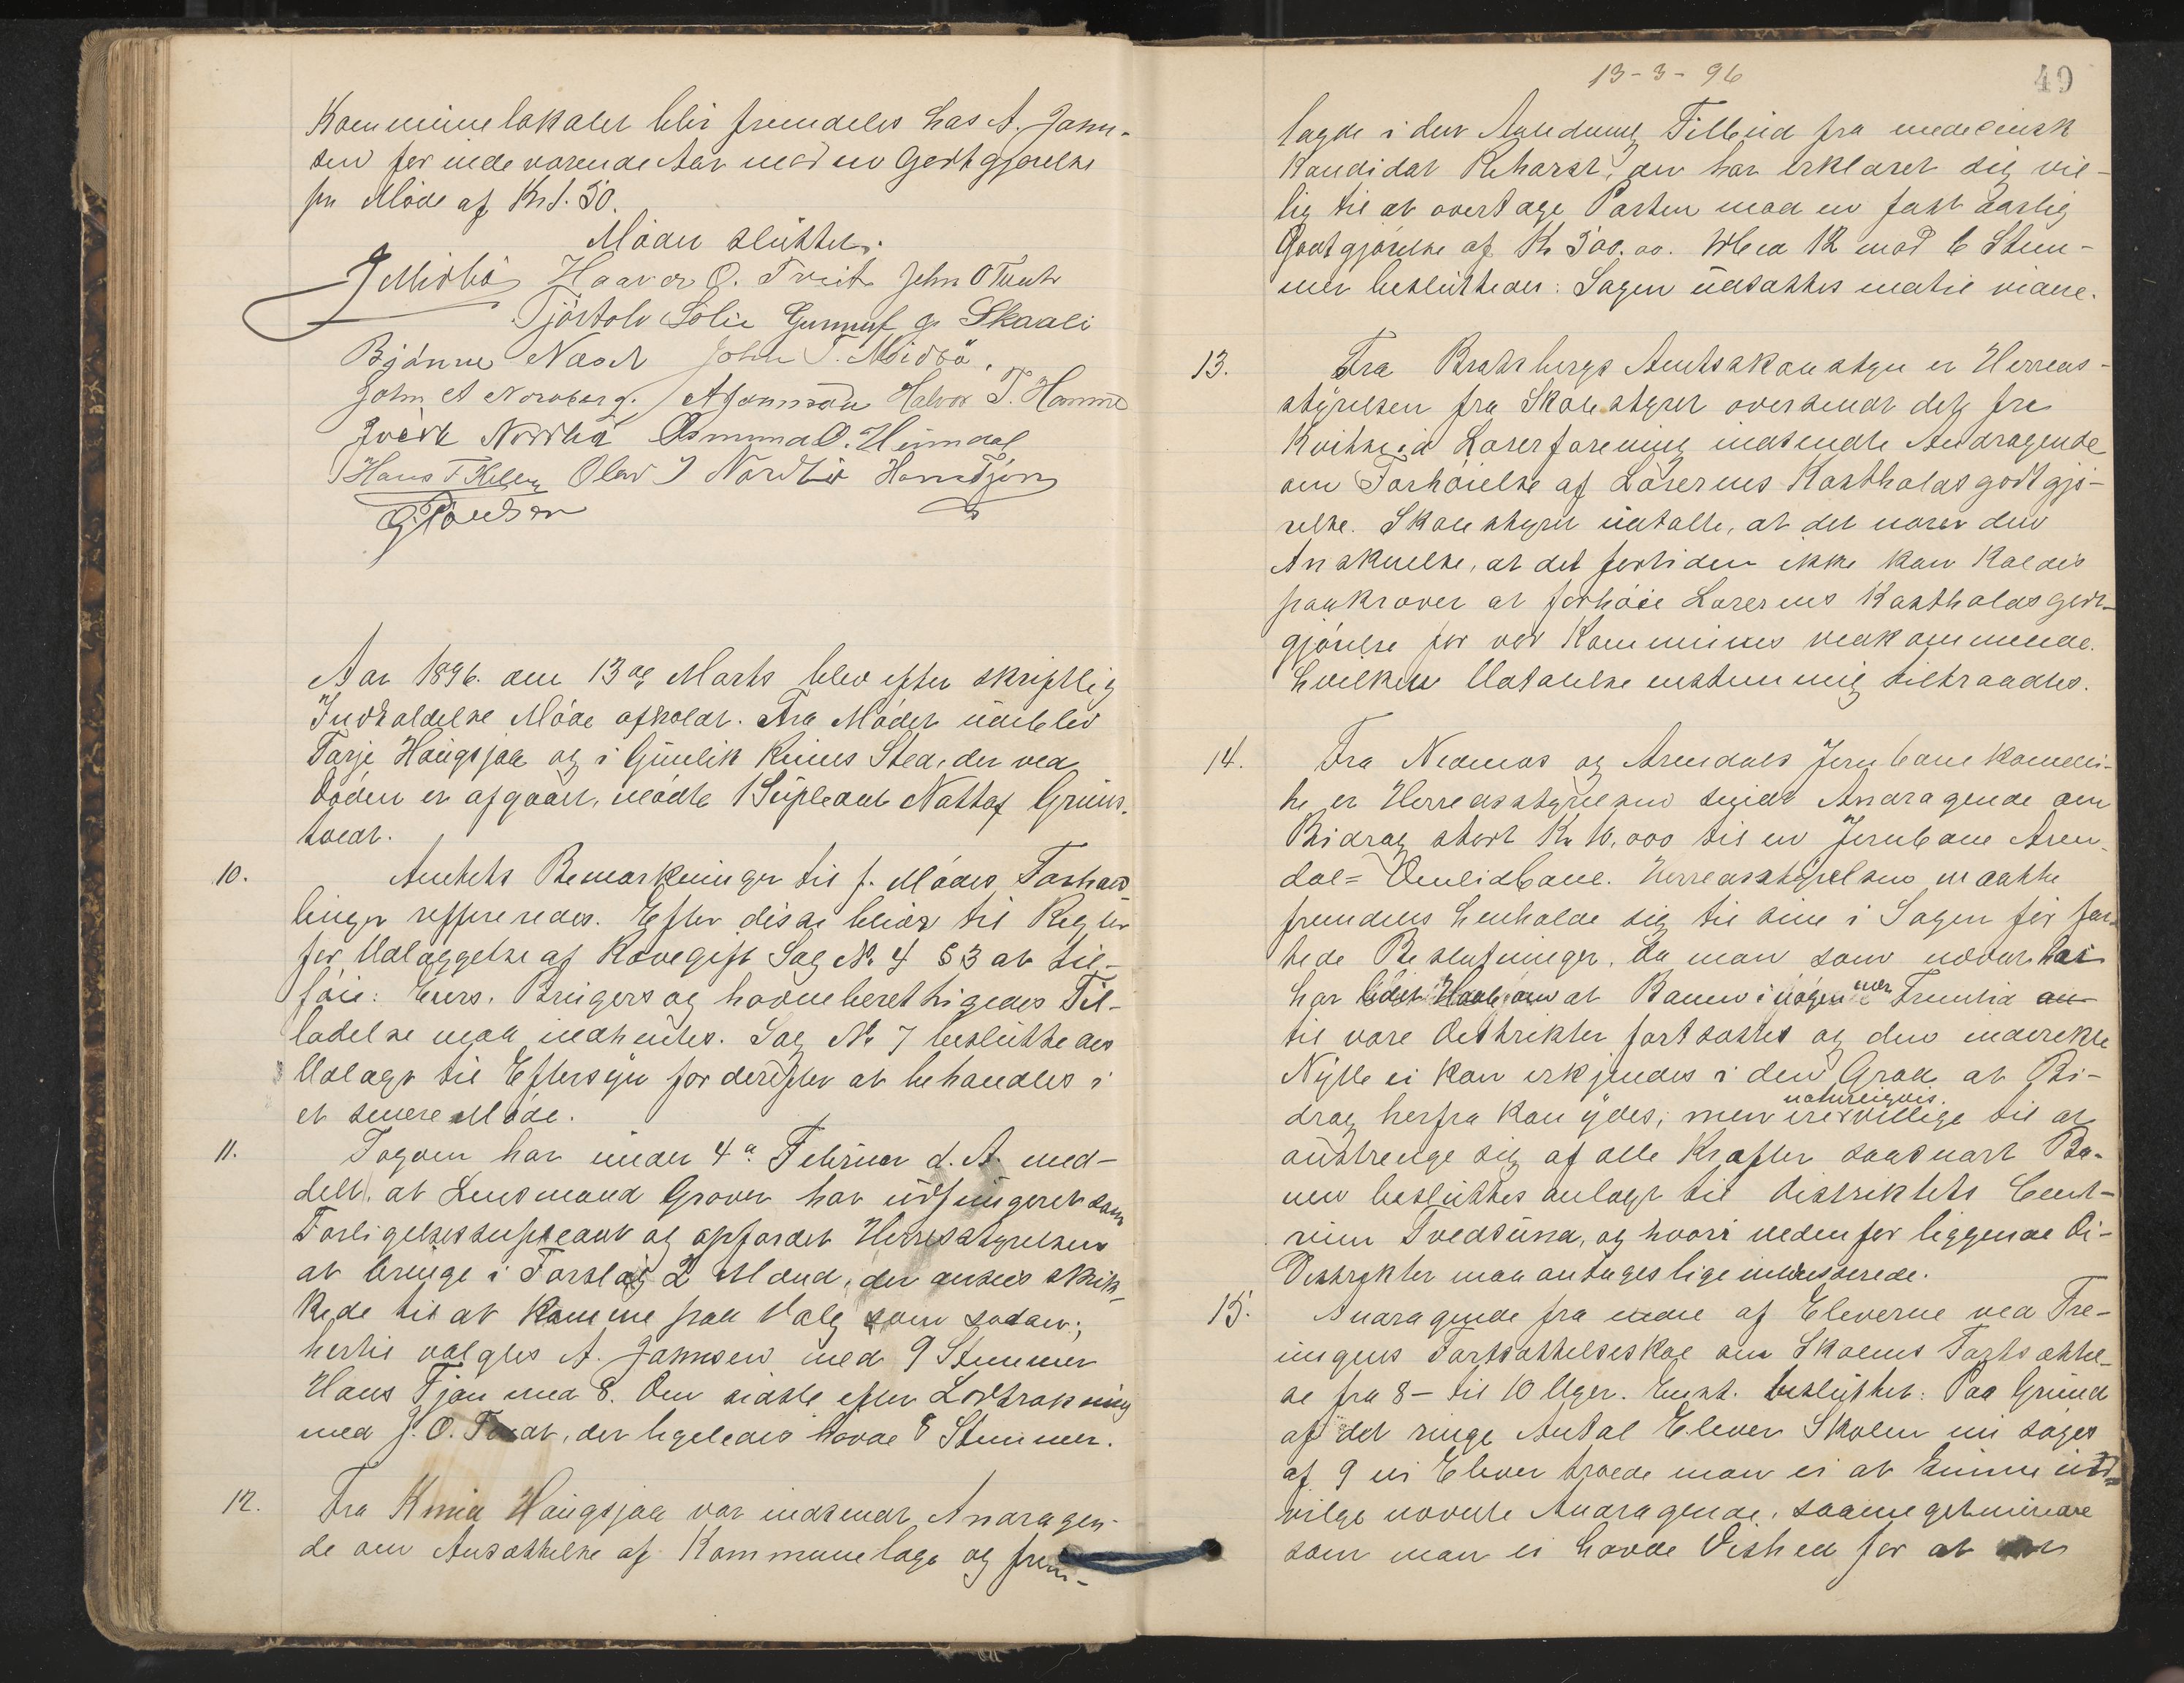 Kommunelokalet blir fremdeles hos A. Jonn-
sen for indeværende Aar mod en Godtgjørelse
pr Møde af Kr 1.50.
Mødet sluttet.
J Midbø Haavor O. Tveit John O Tveit
Tjöstolv Solli Gunnuf G. Skaali
Bjönne Næset John T. Midbö.
John A Nordberg. A Jonnson Halvor T. Homme
Nordbø Osmund O. Heimdal
Hans T Olav J Nordbö Hans Tjön
G Poulsen
Aar 1896. den 13de Marts blev efter skriftlig
Indkaldelse Møde afholdt. Fra Mødet udeblev
Tarje Haugsjaa og i Gunlik Sted, der ved
Døden er afgaaet, mødte 1 Supleant Nattaf
tvedt.
10. Amtets Bemærkninger til f. Mødes Forhand
linger refferedes. Efter disse blir til Regler
for Udlæggelse af Rovegift Sag No 4 § 3 at til-
føie: Eiers, Brugers og havneberettigedes Til-
ladelse maa indhentes. Sag No 7 besluttedes
Udlagt til Eftersyn for derefter at behandles i
et senere Møde.
11. Fogden har under 4de Februar d. A. med-
delt, at Lensmand Grover har udfungeret som
Forligelsessupleant og opfordet Herredsstyrelsen
at bringe i Forslag 2 Mænd, der ansees skik-
kede til at komme paa Valg som sodan;
hertil valgtes A. Jonnsen med 9 Stemmer
Hans Tjøn med 8. Den sidste efter Lodtrækning
med J. O. Tvedt, der ligeledes havde 8 Stemmer.
12. Fra Haugsjaa var indsendt Andragen-
de om Ansættelse af Kommunelæge og frem-
13-3-96
49
lagde i den Anledning Tilbud fra medecinsk
Kandidat, der har erklæret sig vil-
lig til at overtage Posten mod en fast aarlig
Godtgjørelse af Kr 500.00. Med 12 mod 6 Stem-
mer besluttedes: Sagen udsættes indtil videre.
13. Fra Bratsbergs Amtsskolestyre er Herreds-
styrelsen fra Skolestyret oversendt det fra
Kvitseid Lærerforening indsendte Andragende
om Forhøielse af Lærernes Kostholdsgodtgjø-
relse. Skolestyret udtalte, at det nærer den
Anskuelse, at det fortiden ikke kan kaldes
paakrævet at forhøie Lærernes Kostholdsgodt-
gjørelse for vor Kommunes vedkommende.
hvilken Udtalelse enstemmig tiltraadtes.
14. Fra Nedenæs og Arendals Jernbanekomite-
he er Herredsstyrelsen tilsidt Andragende om
Bidrag stort Kr 10,000 til en Jernbane Aren-
dal= Omlidbane. Herredsstyrelsen maatte
fremdeles henholde sig til sine i Sagen før fat-
tede Beslutninger, da man som
har lidet Haab om at Banen i nogen nær Fremtid
til vore Destrikter fortsættes og den inderekte
Nytte ei kan erkjendes i den Grad, at Bi-
drag herfra kan ydes; men er naturligvis villige til at
anstrenge sig af alle Kræfter saasnart Ba-
nen besluttes anlagt til distriktets Cent-
rum Tvedsund, og hvori nedenfor liggende Di-
Destrikter maa antages lige interesserede.
15. Andragende fra endel af Eleverne ved Tre-
ungens Fortsættelsesskole om Skolens Fortsættel-
se fra 8 – til 10 Uger. Enst. besluttet: Paa Grund
af det ringe Antal Elever Skolen nu søges
af 9 ni Elever troede man ei at kunne ind=
vilge nævnte Andragende, saameget mindre
som man ei havde Vished for at